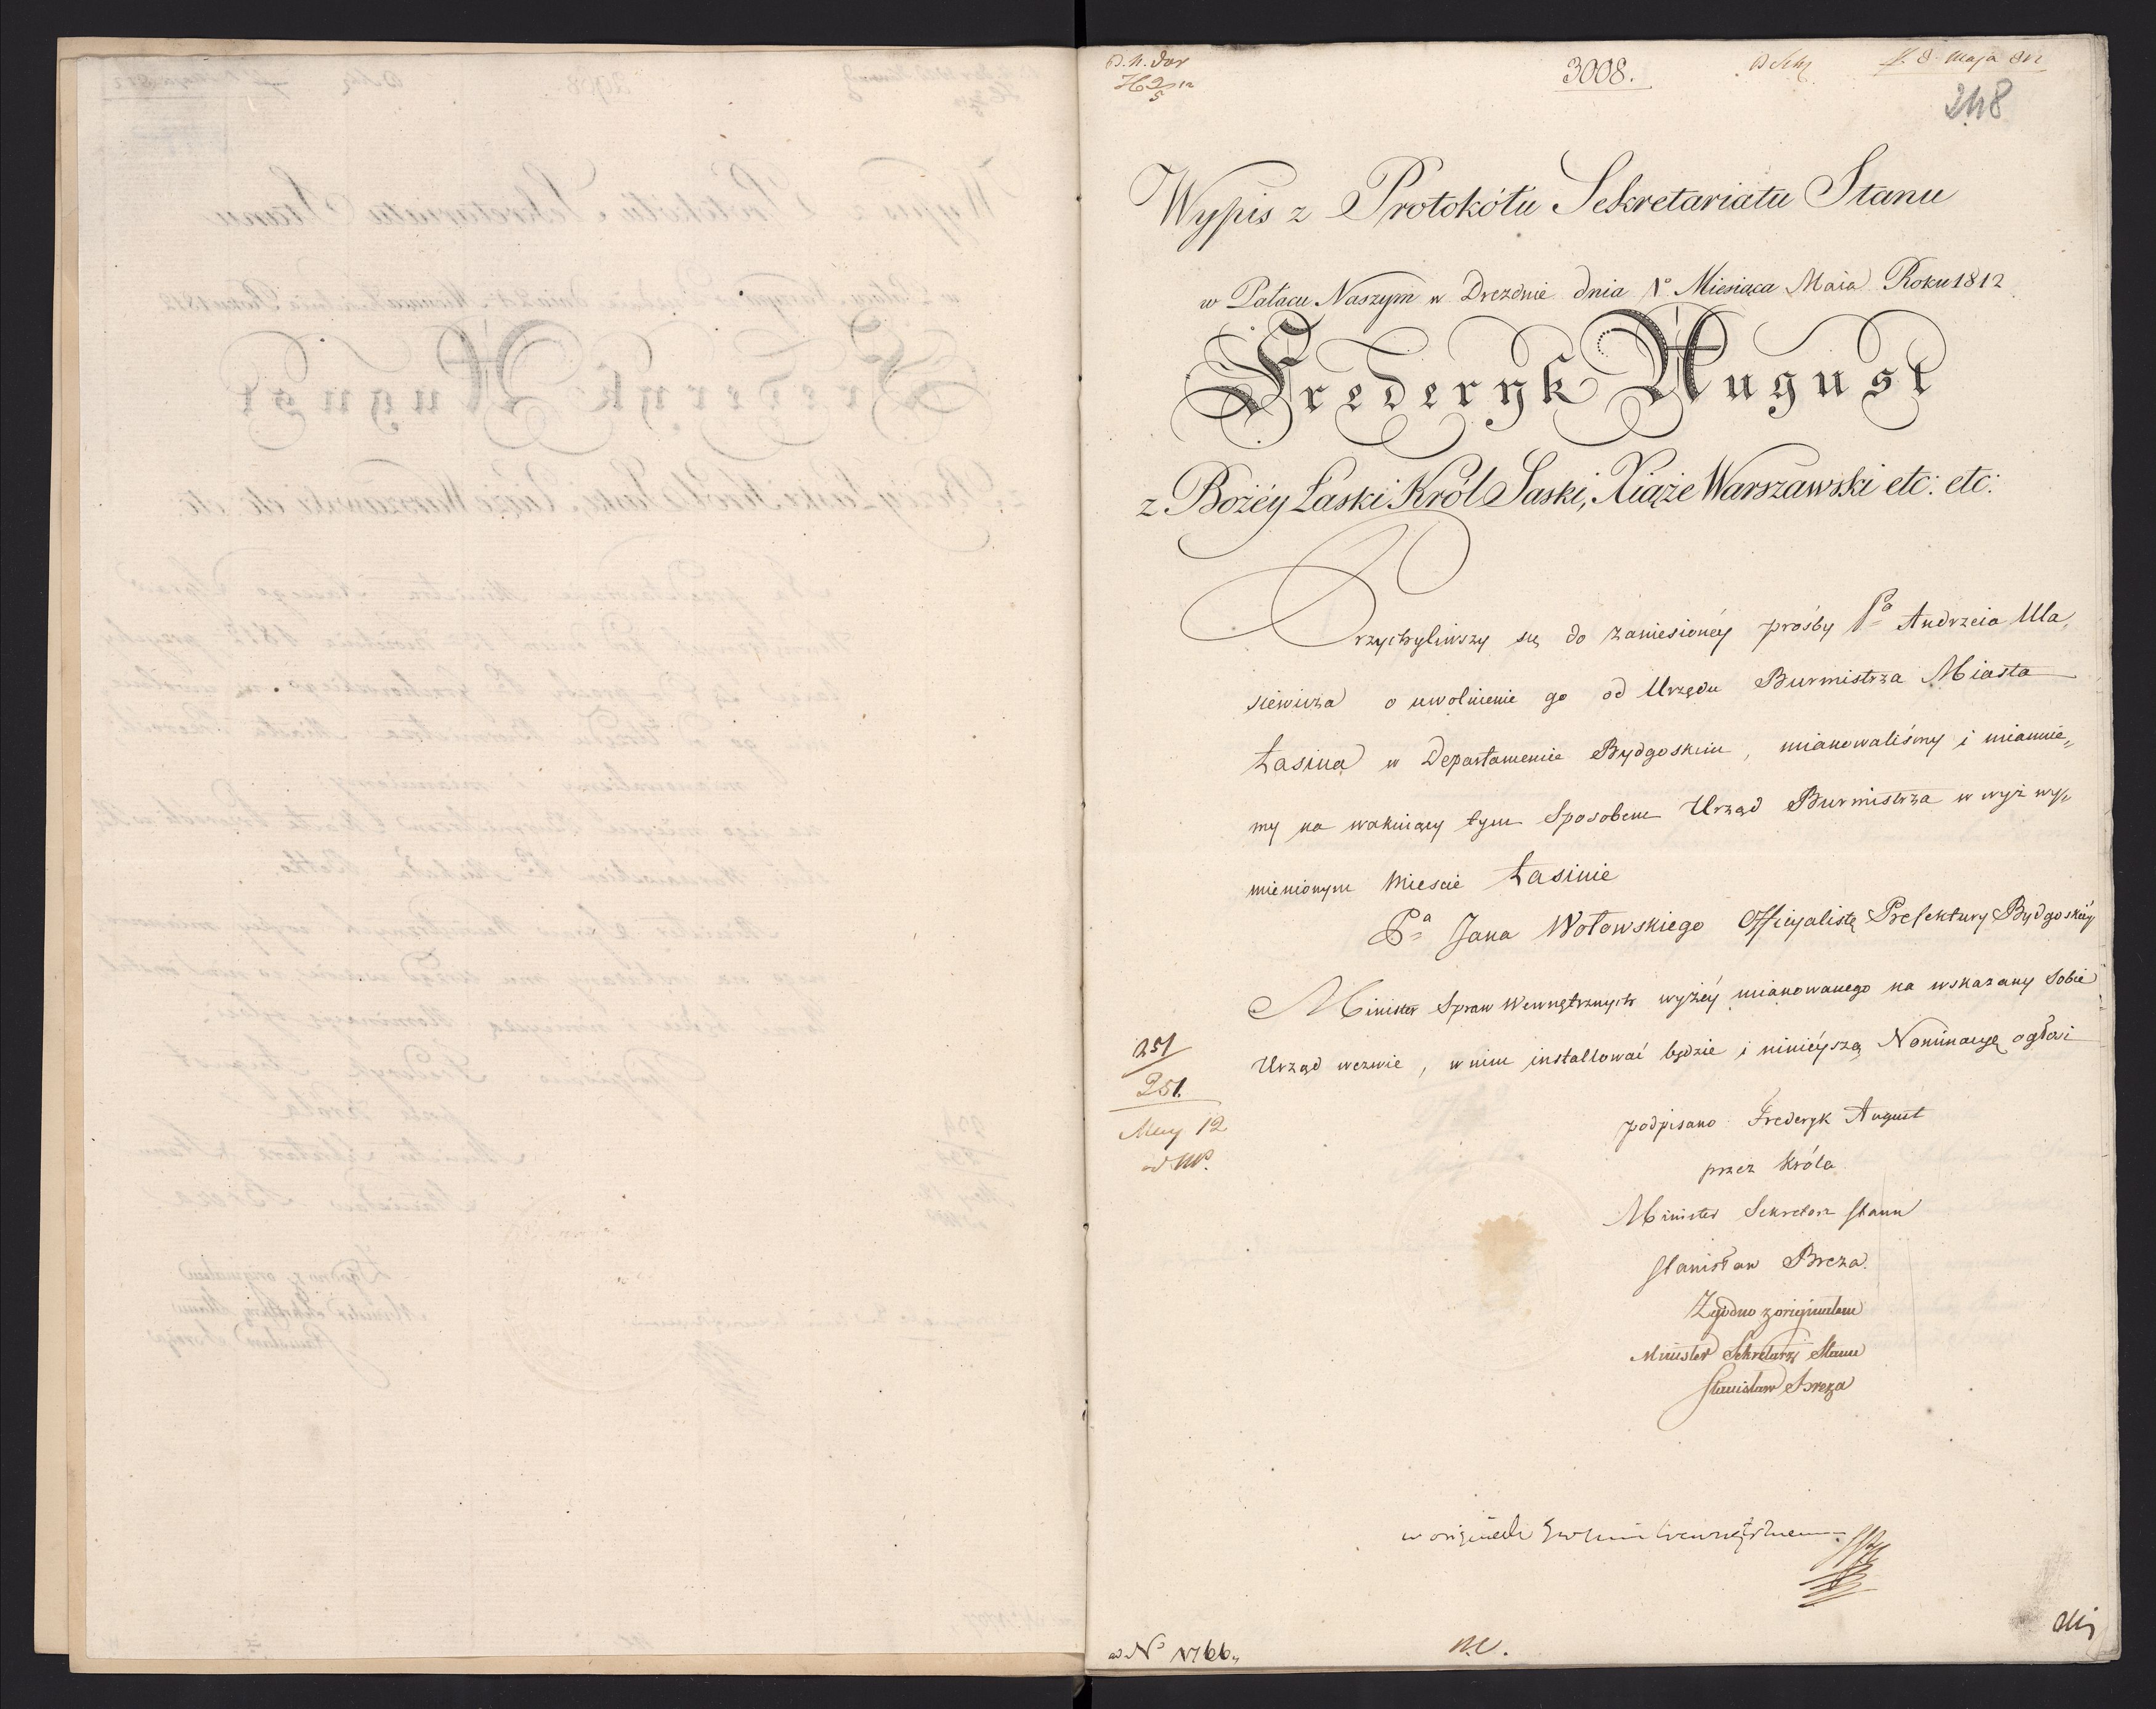 3008.
8 Maja 812
248
Wypis z Protokółu Sekretariatu Stanu
w Pałacu Naszym w Dreznie dnia 1º Miesiąca Maia Roku 1812
Frederyk August
z Bożéy Łaski Król Saski, Xiąże Warszawski etc: etc:
Przychyliwszy się do zaniesionéy prośby Pª Andrzeia Ula„
siewicza o uwolnienie go od Urzędu Burmistrza Miasta
Łasina w Departamencie Bydgoskim, mianowaliśmy i mianuie„
my na wakuiący tym Sposobem Urząd Burmistrza w wyż wy„
mienionym Mieście Łasinie
Pª Jana Wołowskiego Officyalistę Prefektury Bydgoskiéy
Minister Spraw Wewnętrznych wyżéy mianowanego na wskazany Sobie
Urząd wezwie, w nim installować będzie i ninieyszą Nominacyę ogłosi
251
251.
May 12
podpisano Frederyk August
przez Króla
Minister Sekretarz Stanu
Stanisław Breza.
Zgodno z originałem
Minister Sekretarz Stanu
Stanisław Breza
ad Nº 1766„